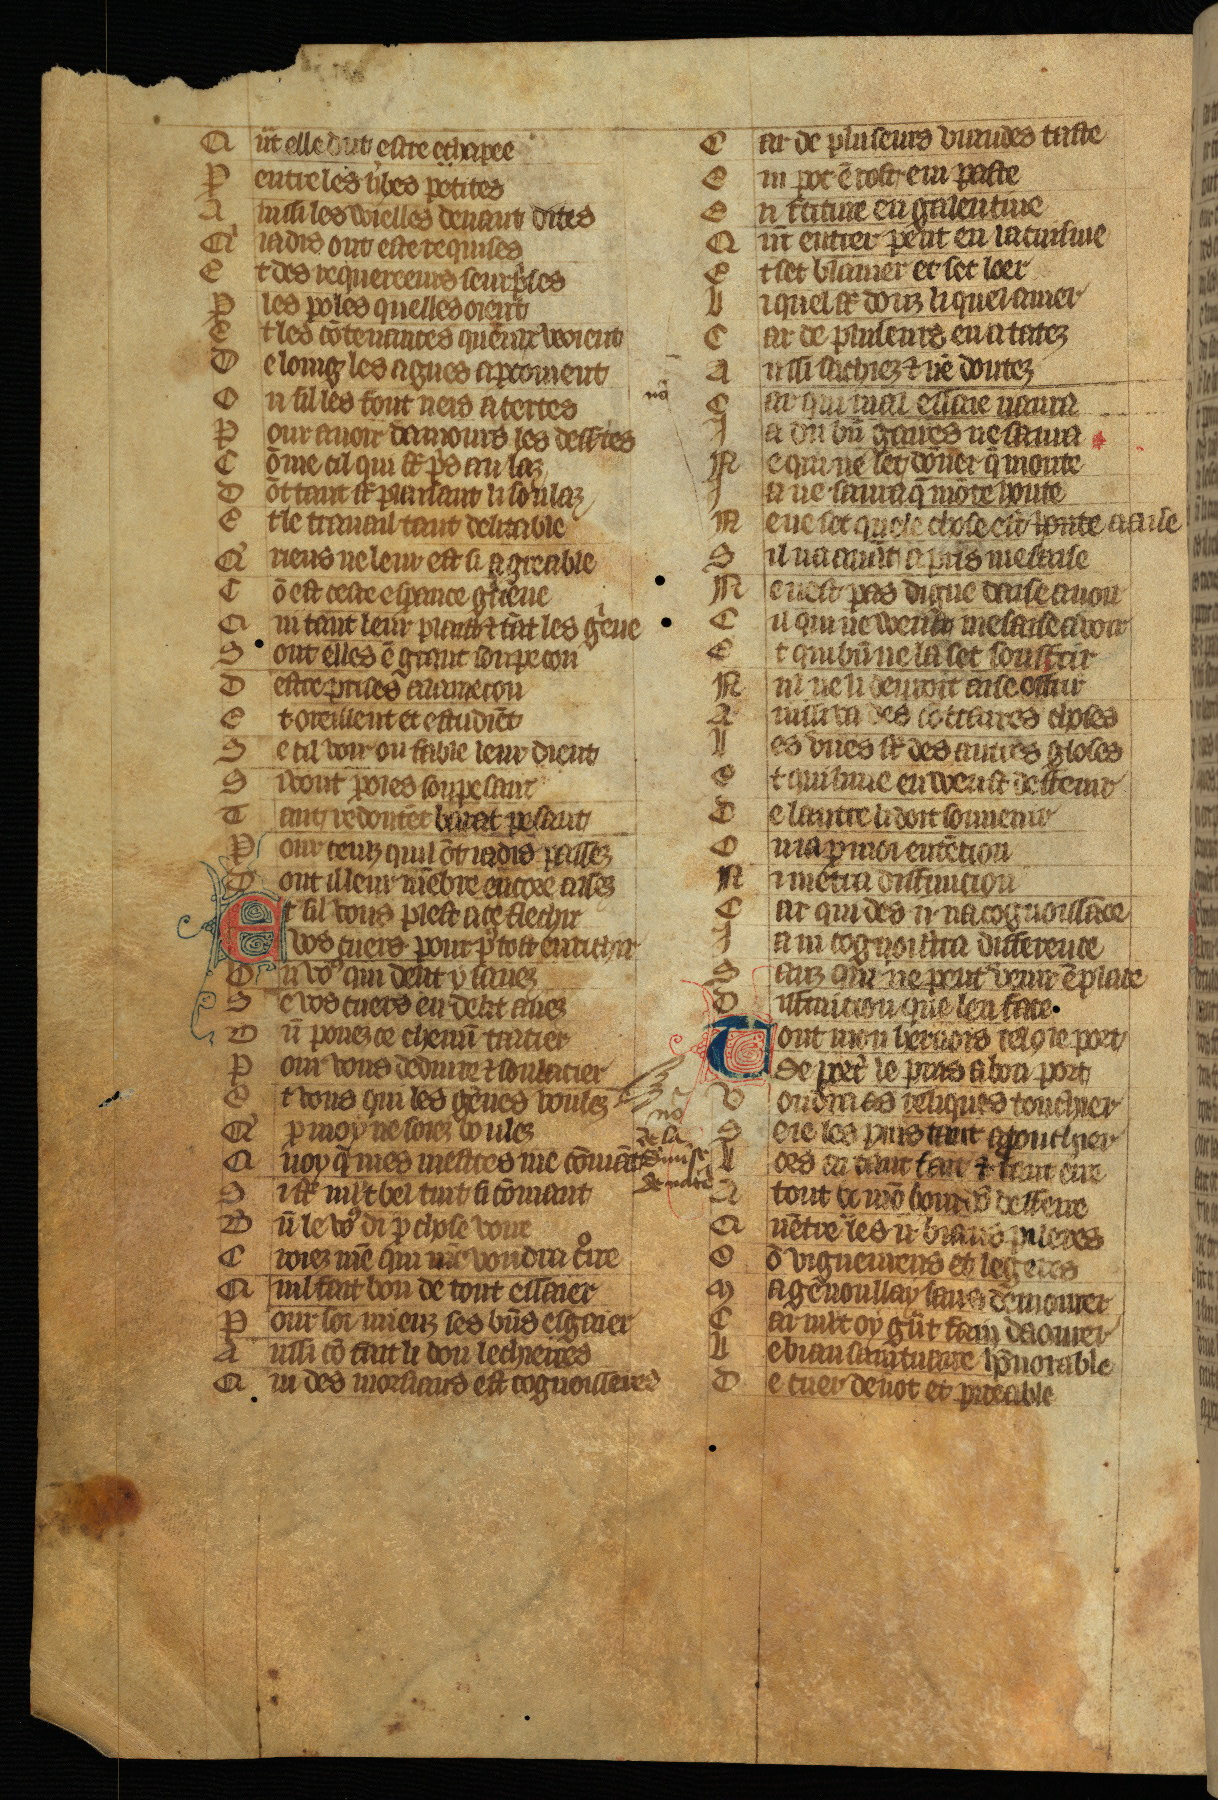 Q ūt elle dut estre echapee
P entre les h̾bes petites
A insi les vielles deuant dites
Q' iadis ont este requises
E t des requerreurs seurp̾ses
P les poles quelles oient
E t les cōtenances quen eux voient
D e loing les agues apcoiuent
O n filles sont uers
P our auoir damours les dess̾tes
C ōme cil qui est pris au laz
D ōt tant est plaisant li soulaz
E t le trauail tant delitable
Q' riens ne leur est si agreable
C ō est ceste esp̾ance g̾iene
Q ui tant leur plaist ⁊ tāt les g̾ieue
S ont elles ē grant soupecon
D estre prises a lamecon
E t oreillent et estudiēt
S e cil voir ou fable leur dient
S i vont poles soupesant
T ant redoutēt barat pesant
P our ceux quil ōt iadis passez
D ont il leur mēbre encore assez
E t sil vous plest a ce flechir
Vos cuers pour p̾ tost enrichir
O u vo9 qui delit y sauez
S e vos cuers en delit auez
B n̄ pouez ce chemin tracier
P our vous deduire ⁊ soulacier
E t vous qui les g̾eues voulez
Q' p moy ne soiez voulez
Q uoy q̄ mes mestres me cōmāt
S i est mlt bel tout si cōmant
B n̄ le vo9 di p chose voire
C roiez mē qui me voudra c̾oire
Q uil fait bon de tout essaier
P our soi mieux es bn̄s esgaier
A ussi cō fait li bon lechierres
Q ui des morsiaus est cognoissieres
C ar de pluseurs viandes taste
E n pot ē rost en paste
E n friture en galentine
Q ūt entrer peut en la cuisine
E t set blamer et set loer
L iquel est douz li quel amer
C ar de pluseurs en a tatez
A ussi sachiez ⁊ nē doutez
C ar qui mal essaie naura
J a du bn̄ gaires ne saura
N e qui ne set dōner q̄ monte
J a ne saura q̄ mōte honte
N e ne set quele chose est aaise
S il na auāt apris mesaise
N e nest pas digne daise auoir
C il qui ne veult mesaise auoir
E t qui bn̄ ne la set souffrir
N ul ne li deuroit aise offrir
A insi va des cōtraires choses
L es vnes st des autres gloses
E t qui lune en veust deffenir
D e lautre li doit souuenir
O u ia p moi entēcion
N i metra diffinicion
C ar qui des ii na cognoissāce
J a ni cognoistra difference
S anz qui ne peut venir ē place
D iffinicion que len face
Tout mon hernois tel q̄ le port
Se port̾ le puis a bon port
V oudrai as reliques touchier
S e ie les puis tant apouchier
L ors ai tant fait ⁊ tant erre
A tout de mō bourdō defferre
Q uētre les ii biaus pileres
O ō vigueureus et legeres
M agenoullay sans demourer
C ar mlt oy g̾nt fain daourer
L e biau saintuaire honorable
D e cuer deuot et piteable
nō
nō
de la